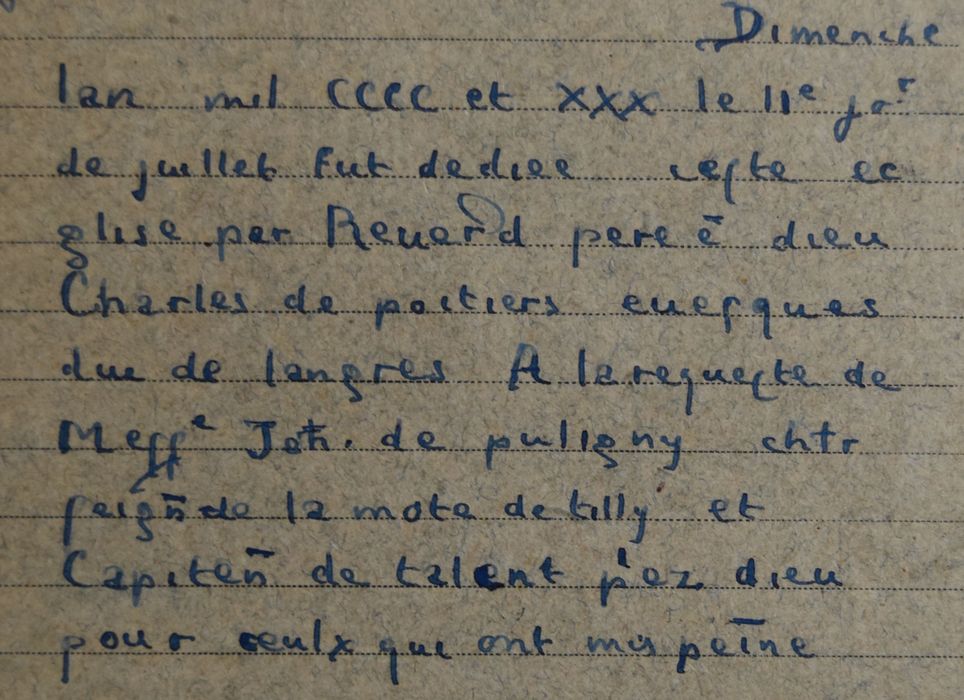 Dimenche
lan mil CCCC et XXX le IIe jor
de juillet fut dediee ceste ec
glise par Reuerd pere ē dieu
Charles de poitiers euesques
duc de langres A la requeste de
Messe Jeh. de puligny chlr
seign̄ de la mote de tilly et
Capiten̄ de talent p'ez dieu
pour ceulx qui ont mis peīne